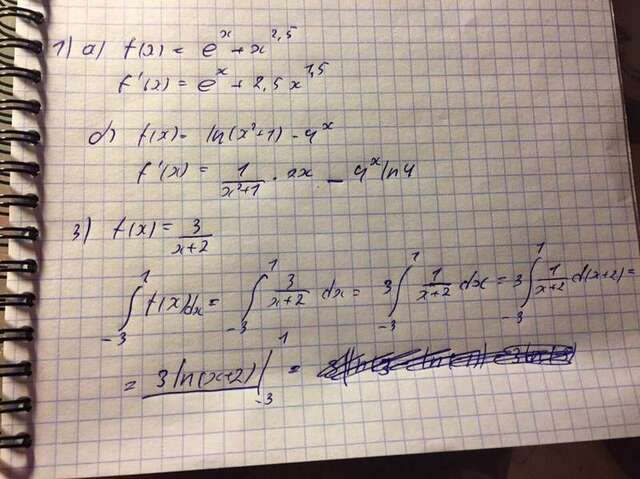 1) a) f(x) = e^x + x^2,5
f'(x) = e^x + 2,5 x^1,5
б) f(x) = ln(x²+1) - 4^x
f'(x) = 1/(x²+1) · 2x - 4^x ln4
3) f(x) = 3/(x+2)
∫_{-3}^{1} f(x)dx = ∫_{-3}^{1} 3/(x+2) dx = 3 ∫_{-3}^{1} 1/(x+2) dx = 3 ∫_{-3}^{1} 1/(x+2) d(x+2) =
= 3 ln(x+2) |_{-3}^{1} =